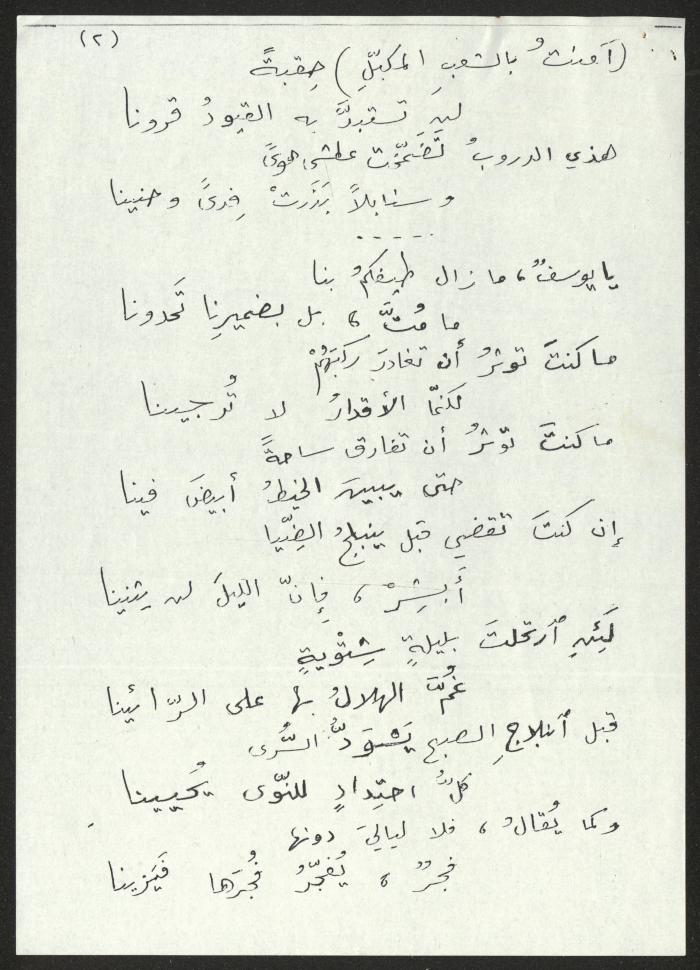 (٢)
(آمنتُ بالشعبِ المكبّلِ) حِقبةً
لن تستبدَّ به القيودُ قرونا
هذي الدروبُ تَضَمَّخت عطشى هوىً
وسنابلاً بَذَرتْ فِدىً وحنينا
.....
يا يوسفُ، ما زال طيفكمُ بنا
ما مُتَّ، بل بضميرِنا تَحدونا
ما كنتَ تؤثرُ أن تغادرَ ركبَهُمْ
لكنّما الأقدارُ لا تُرجيينا
ما كنتَ تؤثرُ أن تفارق ساحةً
حتى يبينَ الخيطُ أبيضَ فينا
إن كنتَ تقضي قبل ينبلجُ الضِّيا
أَبشِرْ، فإنّ الليلَ لن يثنينا
لَئِنِ ٱرتحلتَ بليلةٍ شِتْويةٍ
غُمَّ الهلالُ بها على الرّائينا
قبل ٱنبلاجِ الصبحِ يَسْوَدُّ السُّرى
كلُّ احتِدادٍ للنّوى يُحيينا
وكما يُقالُ، فلا لياليَ دونها
فجرٌ، يُفجّرُ فُجرَها فَيَزينا